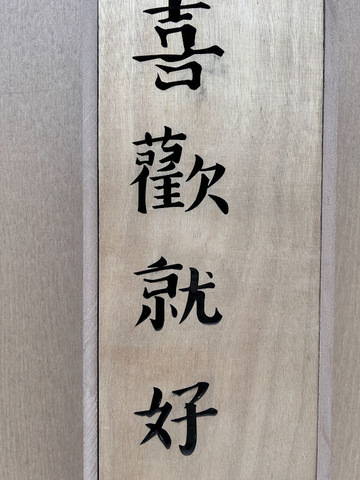 喜歡就好